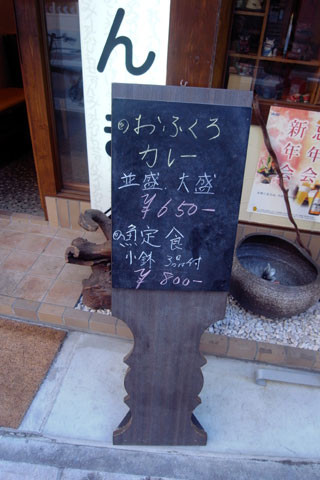 んき
㋨おふくろ
カレー
並盛 大盛
￥650-
㋨魚定食
小鉢 3品付
￥800-
忘年会
新年会